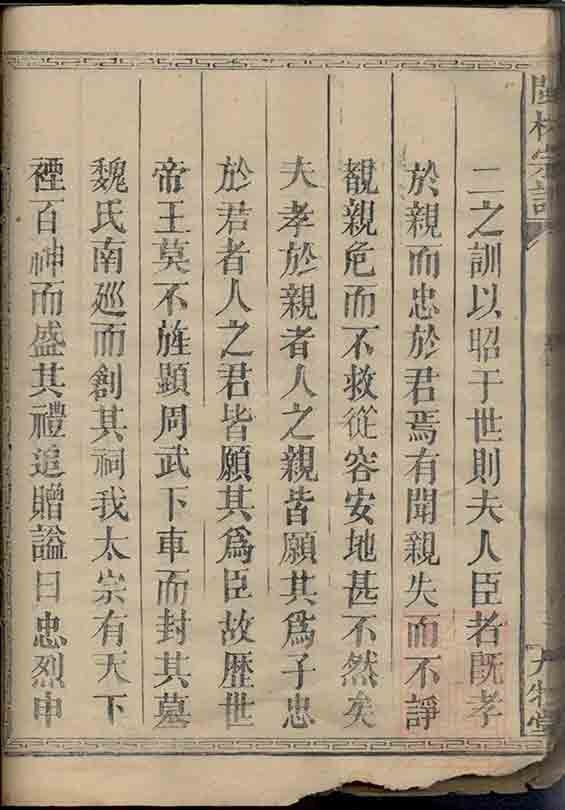 二之訓以昭于世則夫人臣者既孝
於親而忠於君焉有聞親失而不諍
覩親危而不救從容安地甚不然矣
夫孝於親者人之親皆願其爲子忠
於君者人之君皆願其爲臣故歷世
帝王莫不旌顯周武下車而封其墓
魏氏南廵而創其祠我太宗有天下
禋百神而盛其禮追贈謚曰忠烈申